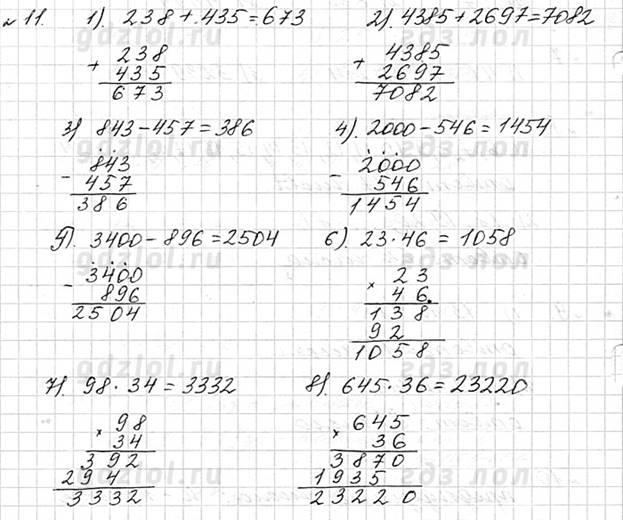 № 11. 1) 238 + 435 = 673
+ 238
435
673
2) 4385 + 2697 = 7082
+ 4385
2697
7082
3) 843 - 457 = 386
- 843
457
386
4) 2000 - 546 = 1454
- 2000
546
1454
5) 3400 - 896 = 2504
- 3400
896
2504
6) 23 · 46 = 1058
× 23
46
138
92
1058
7) 98 · 34 = 3332
× 98
34
392
294
3332
8) 645 · 36 = 23220
× 645
36
3870
1935
23220
gdzlol.ru